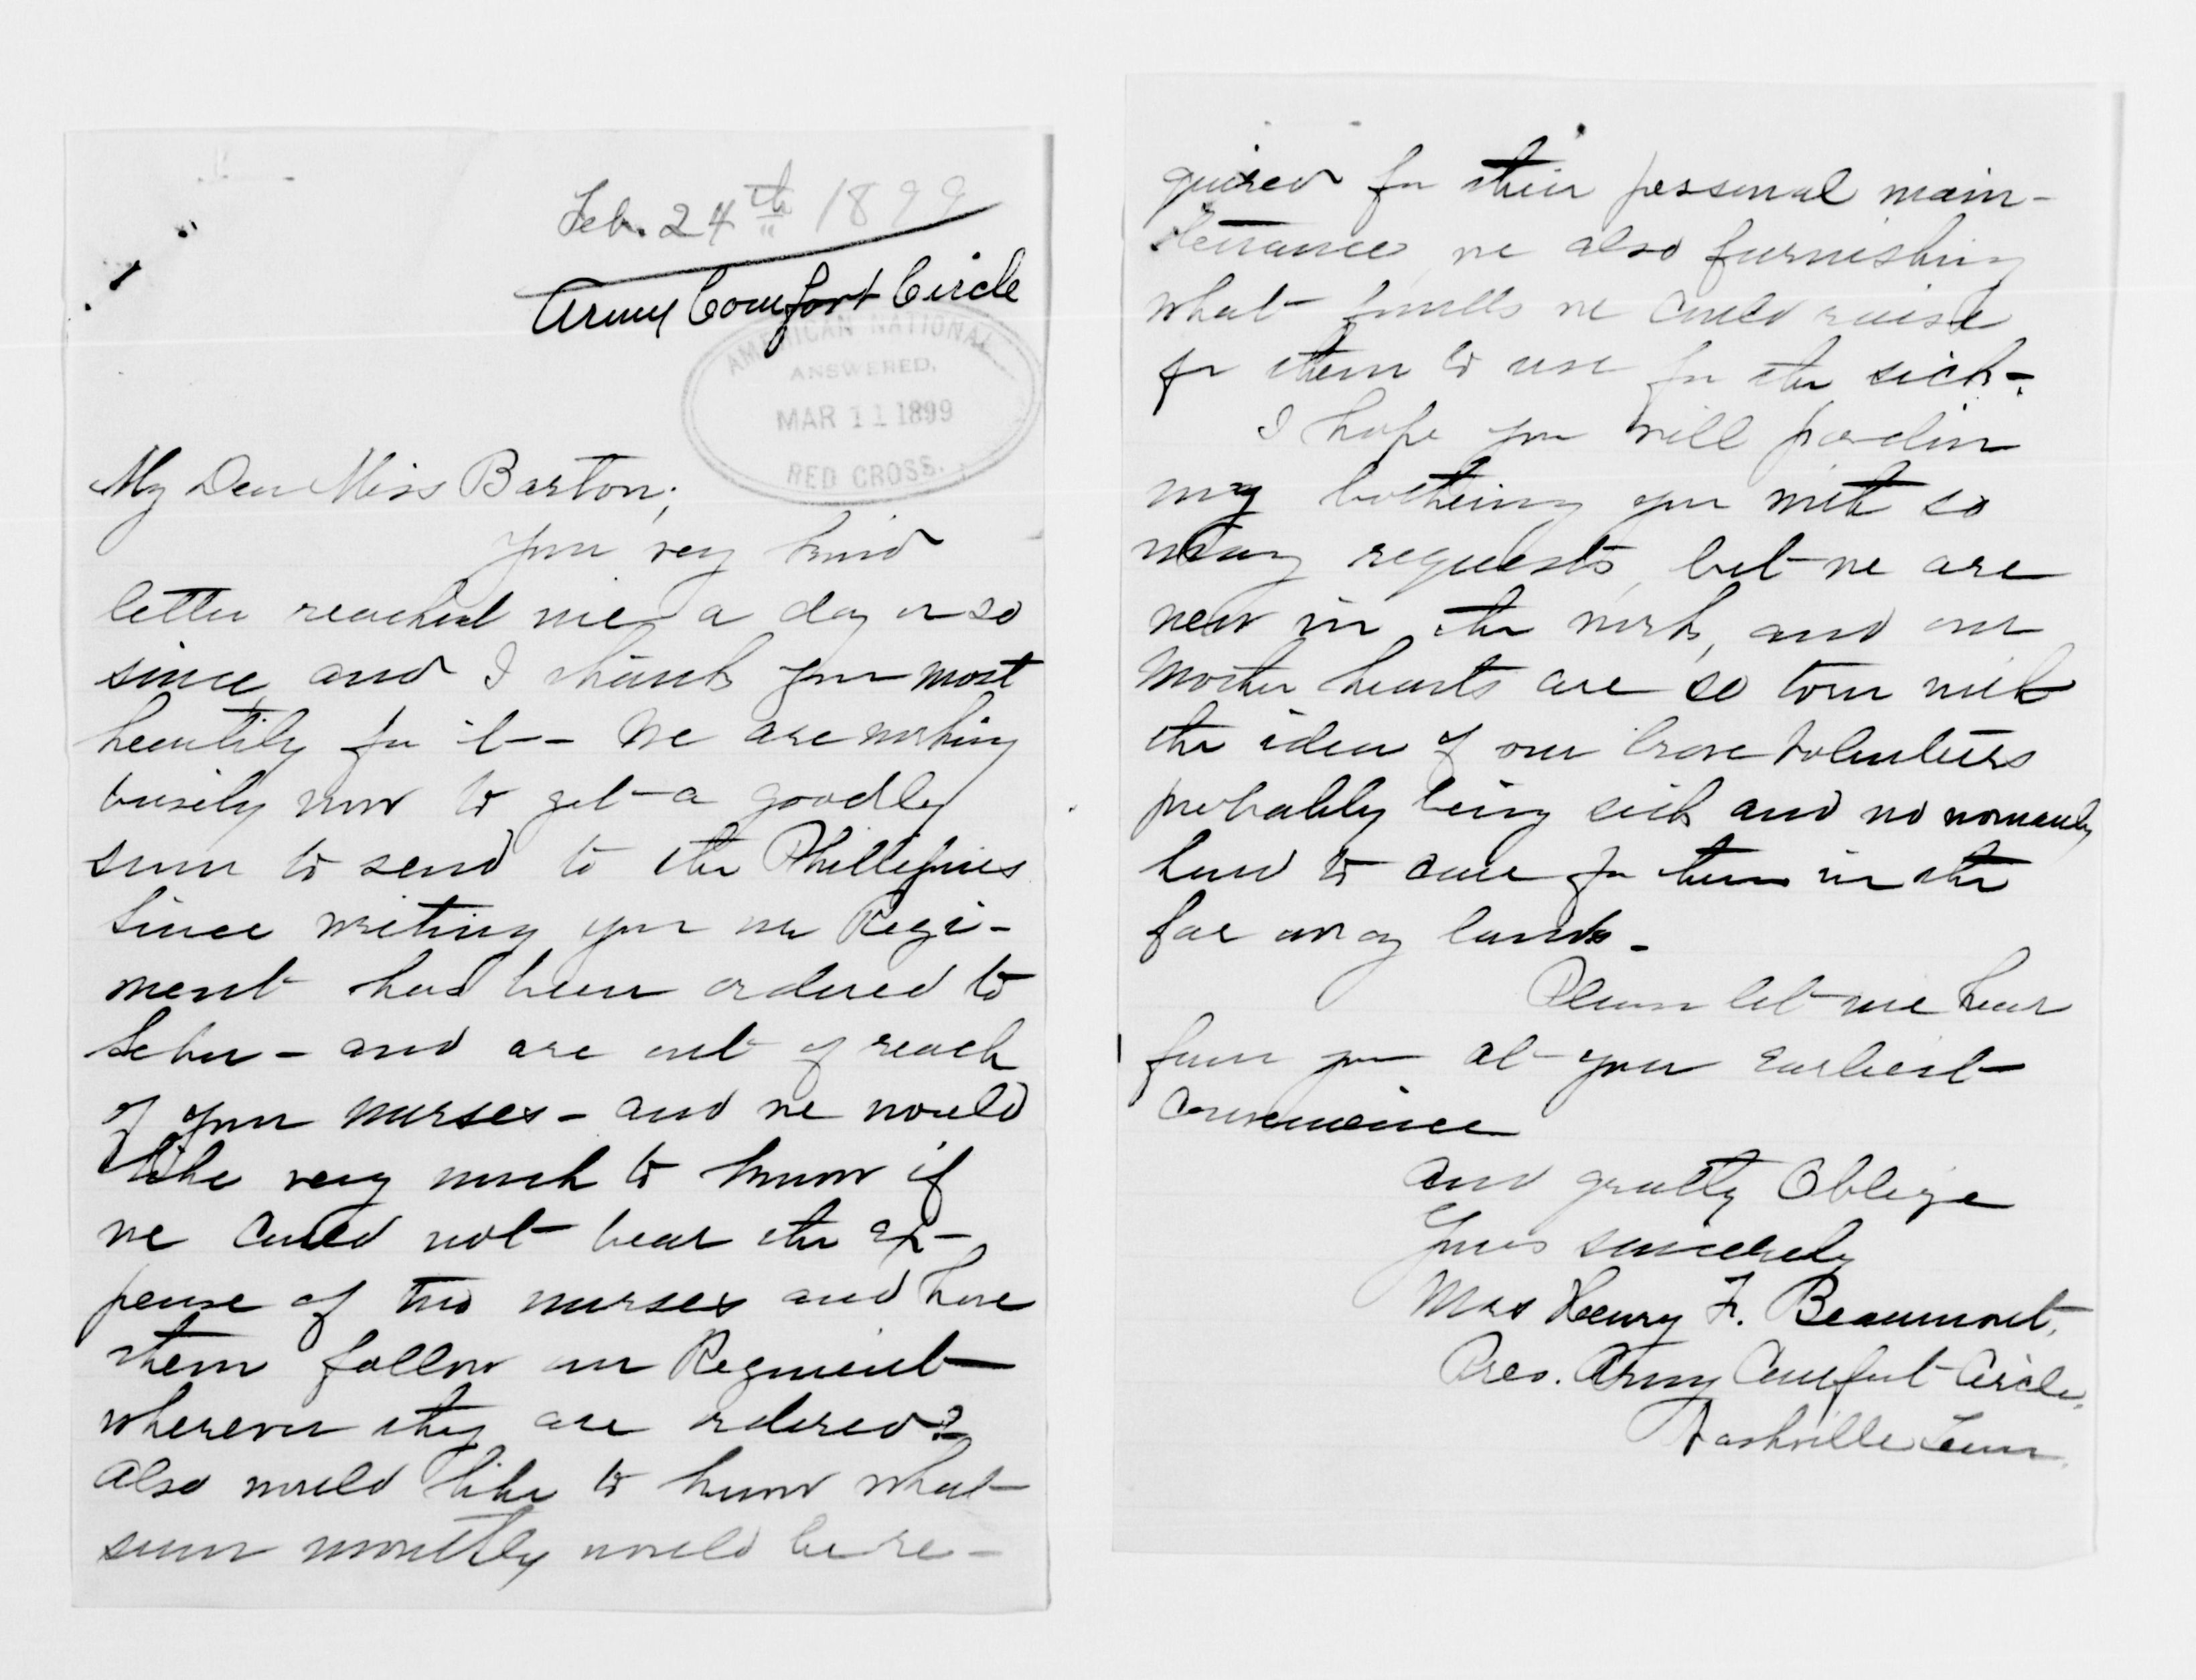 Feb. 24th 1899
Army Comfort Circle
AMERICAN NATIONAL
ANSWERED,
MAR 11 1899
RED CROSS.
My Dear Miss Barton;
Your very kind
letter reached me a day or so
since, and I thank you most
heartily for it - We are working
busily now to get a goodly
sum to send to the Phillipines
Since writing you our Regi-
ment has been ordered to
- and are out of reach
of your nurses - and we would
like very much to know if
we could not bear the ex-
pense of two nurses and have
them follow our Regiment
wherever they are ordered?
Also would like to know what
sum monthly would be re-
quired for their personal main-
tenance, we also furnishing
what we could raise
for them to use for the sick -
I hope you will pardon
my bothering you with so
many requests, but we are
new in the work, and our
Mother hearts are so torn with
the idea of our brave Volunteers
probably being sick and no womanly
hand to care for them in the
far away lands -
Please let me hear
from you at your earliest
convenience
and greatly Oblige
Yours sincerely
Mrs Henry F. Beaumont,
Pres. Army Comfort Circle,
Nashville Tenn.